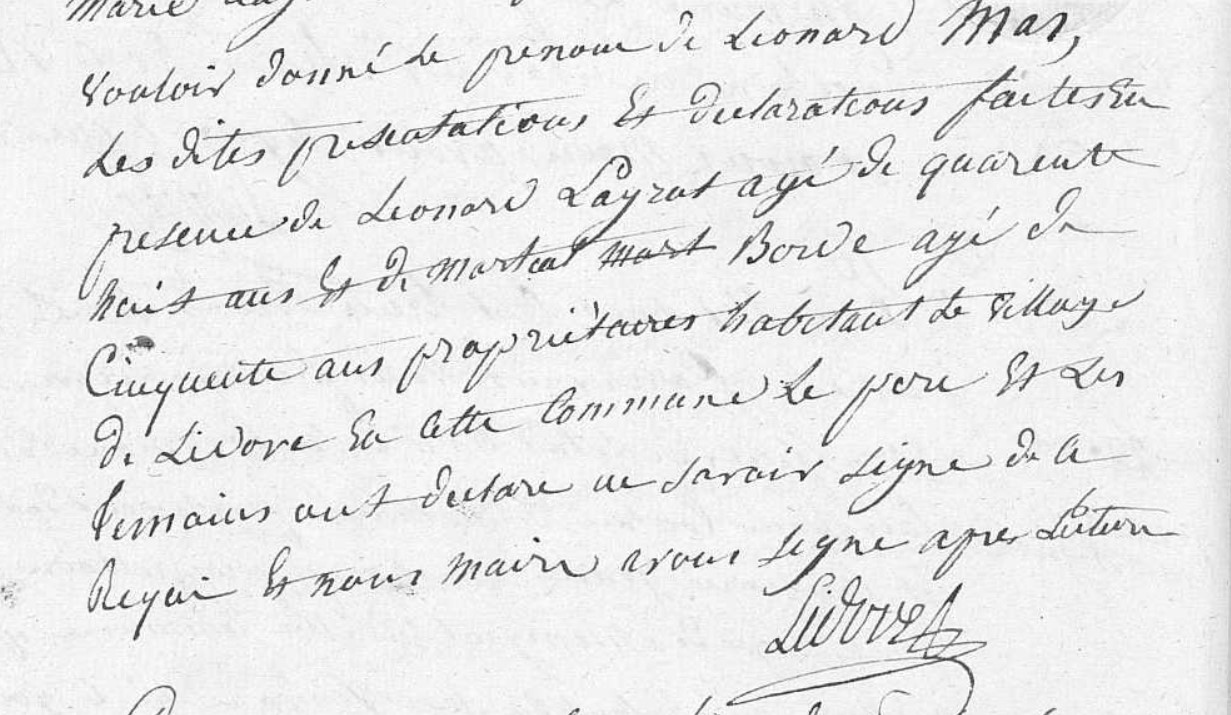 vouloir donné le prenom de Leonard Mas,
les dites presentations et declarations faites en
presence de Leonard Layrat agé de quarente
huit ans et de martial mart Borde agé de
Cinquente ans propriétaires habitant le village
de Lidove en cette Commune le pere et les
temoins ont declare ne savoir signe de ce
Requi et nous maire avons signe apres Lecture
Lidove